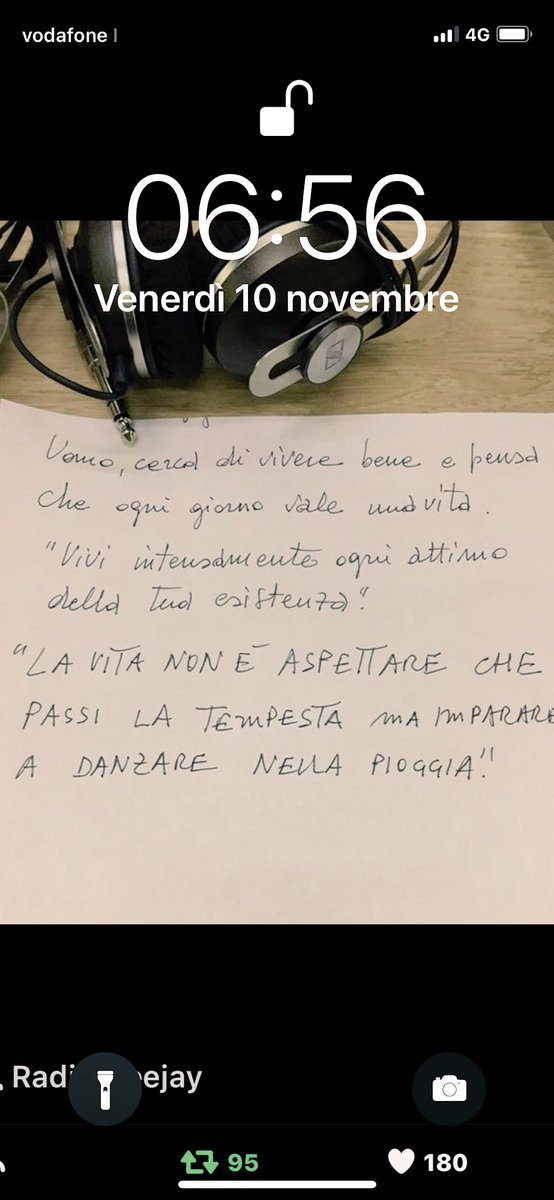 vodafone
4G
06:56
Venerdì 10 novembre
Uomo, cerca di vivere bene e pensa
che ogni giorno vale una vita.
"Vivi intensamente ogni attimo
della tua esistenza".
"LA VITA NON È ASPETTARE CHE
PASSI LA TEMPESTA MA IMPARARE
A DANZARE NELLA PIOGGIA".
Radi eejay
95
180